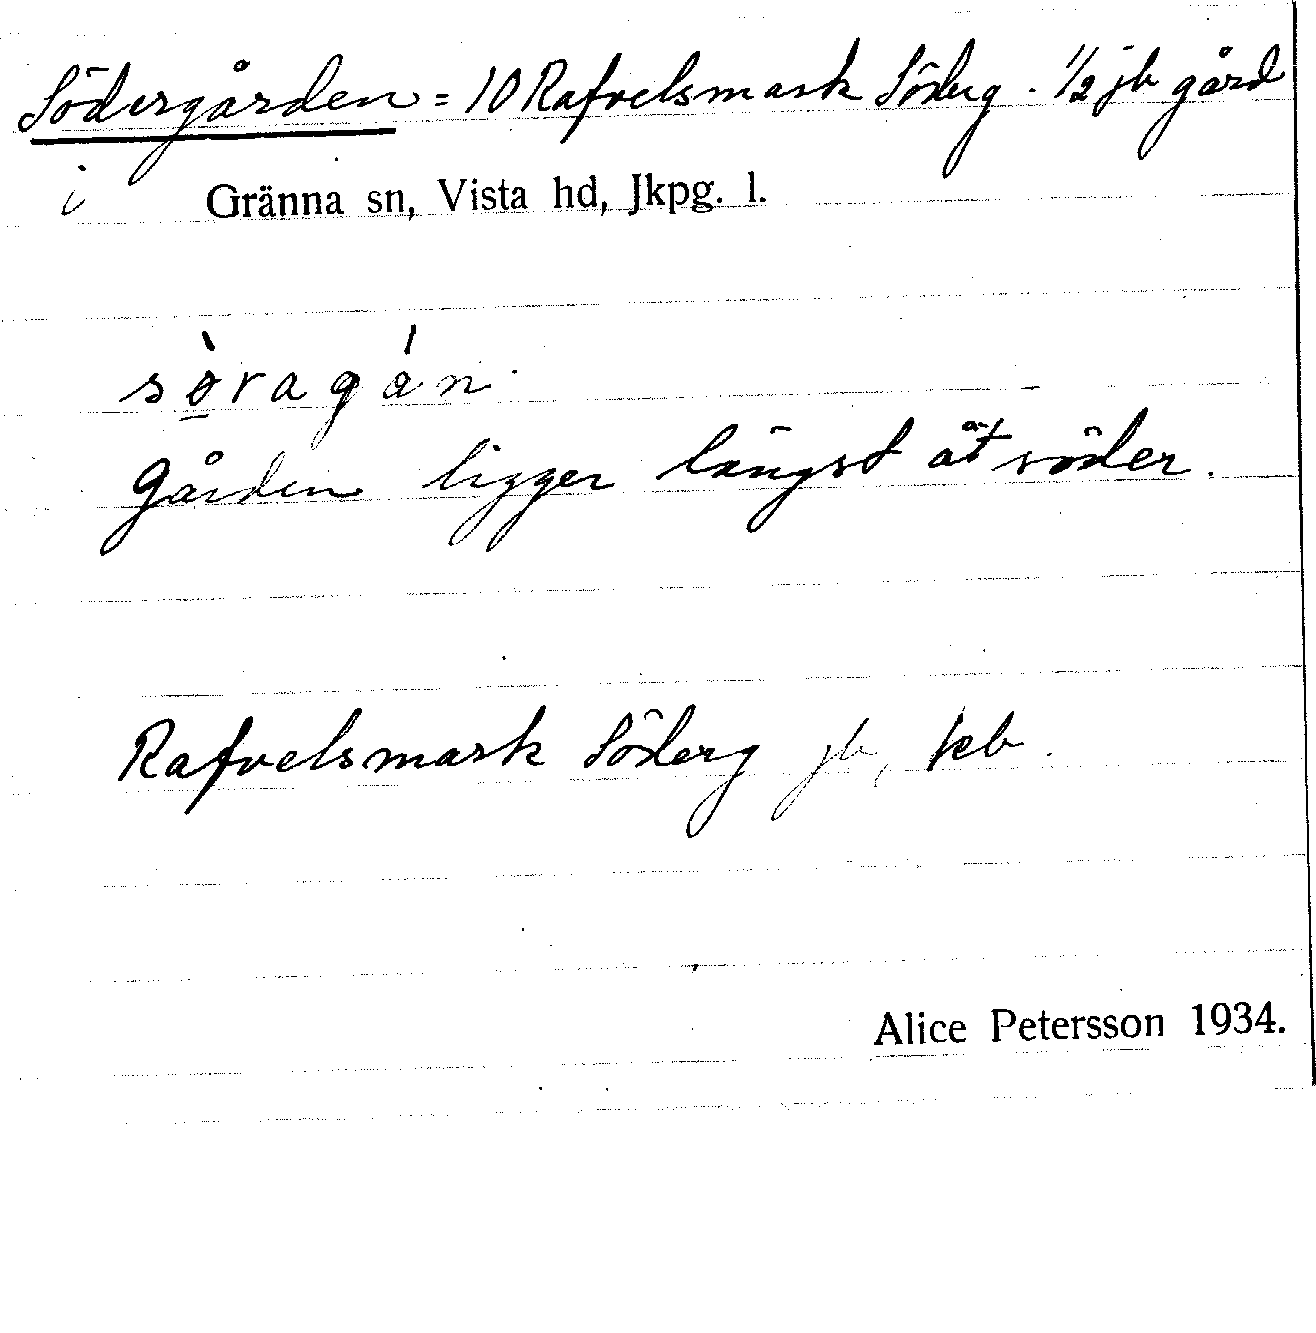 Södergården = 10 Rafvelsmark Söderg. 1/2 jb gård
i Gränna sn, Vista hd, Jkpg. l.
sö̀ragán.
Gården ligger längst åt söder.
Rafvelsmark Söderg jb, keb.
Alice Petersson 1934.